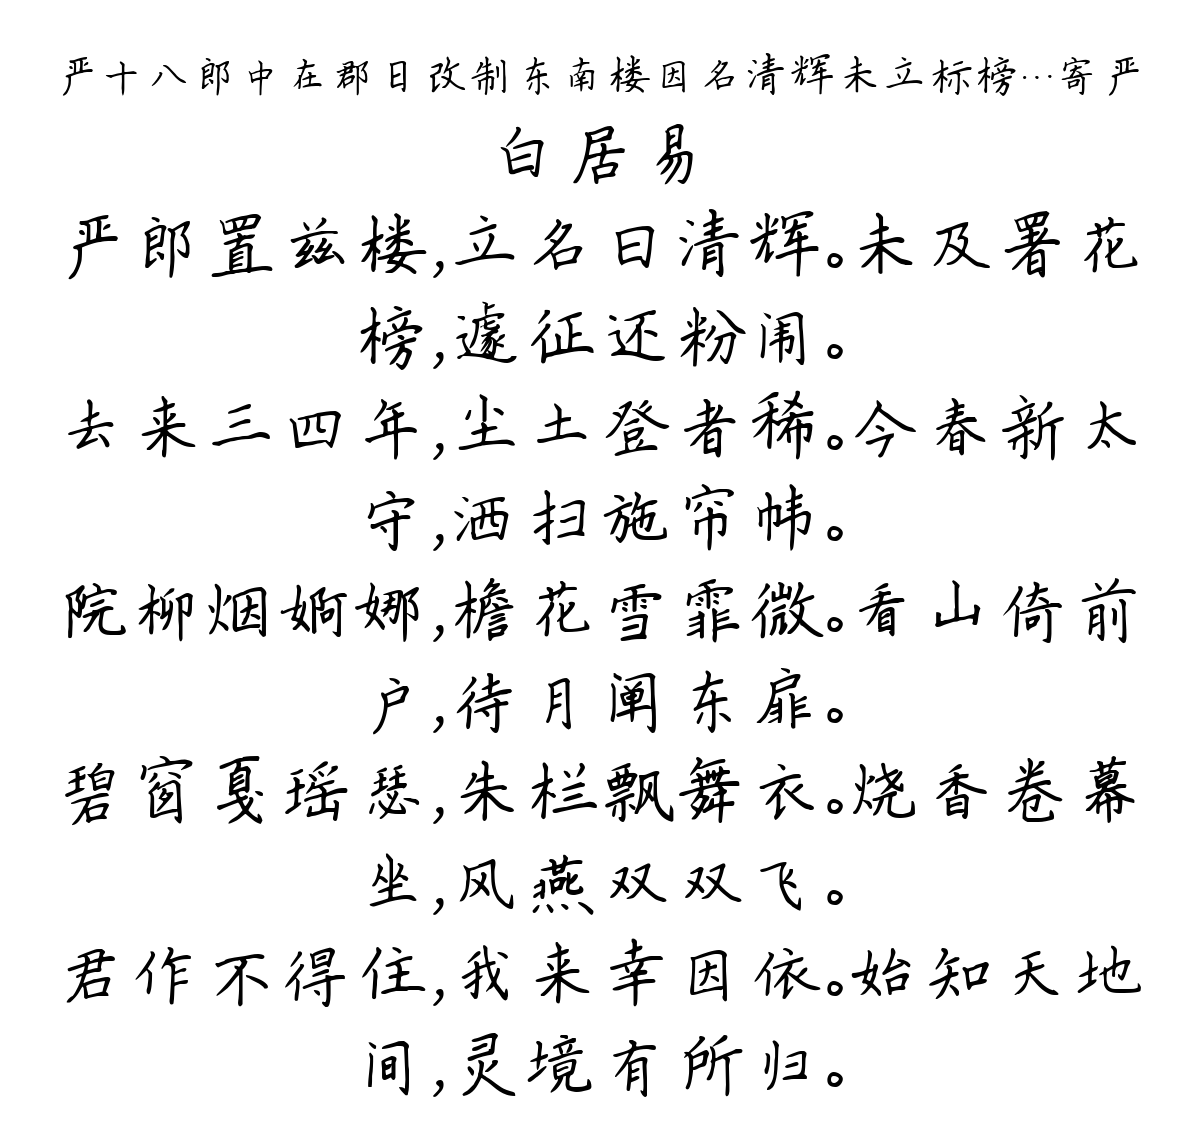 严十八郎中在郡日改制东南楼因名清辉未立标榜…寄严
白居易
严郎置兹楼,立名曰清辉。未及署花
榜,遽征还粉闱。
去来三四年,尘土登者稀。今春新太
守,洒扫施帘帏。
院柳烟婀娜,檐花雪霏微。看山倚前
户,待月阐东扉。
碧窗戛瑶瑟,朱栏飘舞衣。烧香卷幕
坐,风燕双双飞。
君作不得住,我来幸因依。始知天地
间,灵境有所归。